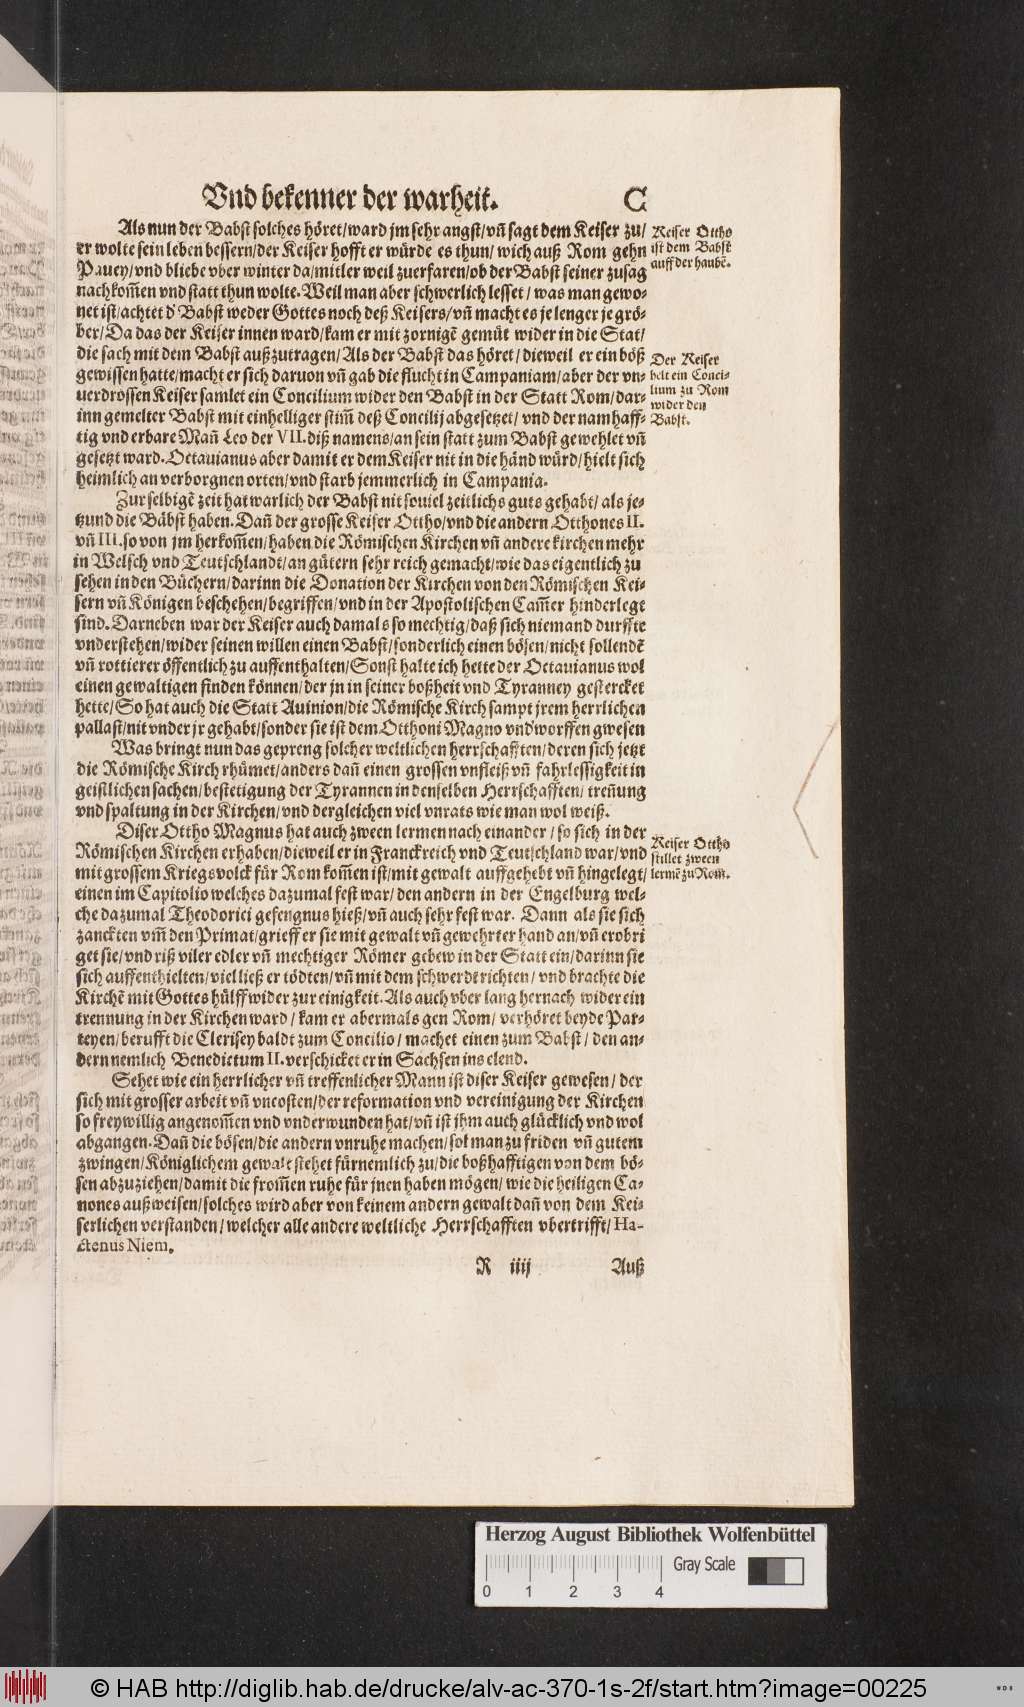 Vnd bekenner der warheit. C
Als nun der Babst solches höret/ward jm sehr angst/vñ sagt dem Keiser zu/
er wolte sein leben bessern/der Keiser hofft er würde es thun/wich auß Rom gehn
Pauey/vnd bliebe vber winter da/mitler weil zuerfaren/ob der Babst seiner zusag
nachkom̃en vnd statt thun wolte. Weil man aber schwerlich lesset/was man gewo-
net ist/achtet d' Babst weder Gottes noch deß Keisers/vñ macht es je lenger je grö-
ber/Da das der Keiser innen ward/kam er mit zornigẽ gemüt wider in die Stat/
die sach mit dem Babst außzutragen/Als der Babst das höret/dieweil er ein böß
gewissen hatte/macht er sich daruon vñ gab die flucht in Campaniam/aber der vn-
uerdrossen Keiser samlet ein Concilium wider den Babst in der Statt Rom/dar-
inn gemelter Babst mit einhelliger stim̃ deß Concilij abgesetzet/vnd der namhaff-
tig vnd erbare Mañ Leo der VII. diß namens/an sein statt zum Babst gewehlet vñ
gesetzt ward. Octauianus aber damit er dem Keiser nit in die händ würd/hielt sich
heimlich an verborgnen orten/vnd starb jemmerlich in Campania.
Keiser Ottho
ist dem Babst
auff der haubẽ.
Der Keiser
helt ein Conci-
lium zu Rom
wider den
Babst.
Zur selbigẽ zeit hat warlich der Babst nit souiel zeitlichs guts gehabt/als je-
tzund die Bäbst haben. Dañ der grosse Keiser Ottho/vnd die andern Otthones II.
vñ III. so von jm herkom̃en/haben die Römischen Kirchen vñ andere kirchen mehr
in Welsch vnd Teutschlandt/an gütern sehr reich gemacht/wie das eigentlich zu
sehen in den Büchern/darinn die Donation der Kirchen von den Römischen Kei-
sern vñ Königen beschehen/begriffen/vnd in der Apostolischen Cam̃er hinderlegt
sind. Darneben war der Keiser auch damals so mechtig/daß sich niemand durffte
vnderstehen/wider seinen willen einen Babst/sonderlich einen bösen/nicht sollendẽ
vñ rottierer öffentlich zu auffenthalten/Sonst halte ich hette der Octauianus wol
einen gewaltigen finden können/der jn in seiner boßheit vnd Tyranney gestercket
hette/So hat auch die Statt Auinion/die Römische Kirch sampt jrem herrlichen
pallast/nit vnder jr gehabt/sonder sie ist dem Otthoni Magno vndworffen gwesen
Was bringt nun das gepreng solcher weltlichen herrschafften/deren sich jetzt
die Römische Kirch rhümet/anders dañ einen grossen vnfleiß vñ fahrlessigkeit in
geistlichen sachen/bestetigung der Tyrannen in denselben Herrschafften/treñung
vnd spaltung in der Kirchen/vnd dergleichen viel vnrats wie man wol weiß.
Diser Ottho Magnus hat auch zween lermen nach einander/so sich in der
Römischen Kirchen erhaben/dieweil er in Franckreich vnd Teutschland war/vnd
mit grossem Kriegsvolck für Rom kom̃en ist/mit gewalt auffgehebt vñ hingelegt/
einen im Capitolio welches dazumal fest war/den andern in der Engelburg wel-
che dazumal Theodorici gefengnus hieß/vñ auch sehr fest war. Dann als sie sich
zanckten vm̃ den Primat/grieff er sie mit gewalt vñ gewehrter hand an/vñ erobri
get sie/vnd riß viler edler vñ mechtiger Römer gebew in der Statt ein/darinn sie
sich auffenthielten/viel ließ er tödten/vñ mit dem schwerdt richten/vnd brachte die
Kirchẽ mit Gottes hülff wider zur einigkeit. Als auch vber lang hernach wider ein
trennung in der Kirchen ward/kam er abermals gen Rom/verhöret beyde Par-
teyen/berufft die Clerisey baldt zum Concilio/machet einen zum Babst/den an-
dern nemlich Benedictum II. verschicket er in Sachsen ins elend.
Keiser Ottho
stillet zween
lermẽ zu Rom.
Sehet wie ein herrlicher vñ treffenlicher Mann ist diser Keiser gewesen/der
sich mit grosser arbeit vñ vncosten/der reformation vnd vereinigung der Kirchen
so freywillig angenom̃en vnd vnderwunden hat/vñ ist jhm auch glücklich vnd wol
abgangen. Dañ die bösen/die andern vnruhe machen/sol man zu friden vñ gutem
zwingen/Königlichem gewalt stehet fürnemlich zu/die boßhafftigen von dem bö-
sen abzuziehen/damit die from̃en ruhe für jnen haben mögen/wie die heiligen Ca-
nones außweisen/solches wird aber von keinem andern gewalt dañ von dem Kei-
serlichen verstanden/welcher alle andere weltliche Herrschafften vbertrifft/Ha-
ctenus Niem.
R iiij Auß
Herzog August Bibliothek Wolfenbüttel
Gray Scale
0 1 2 3 4
© HAB http://diglib.hab.de/drucke/alv-ac-370-1s-2f/start.htm?image=00225